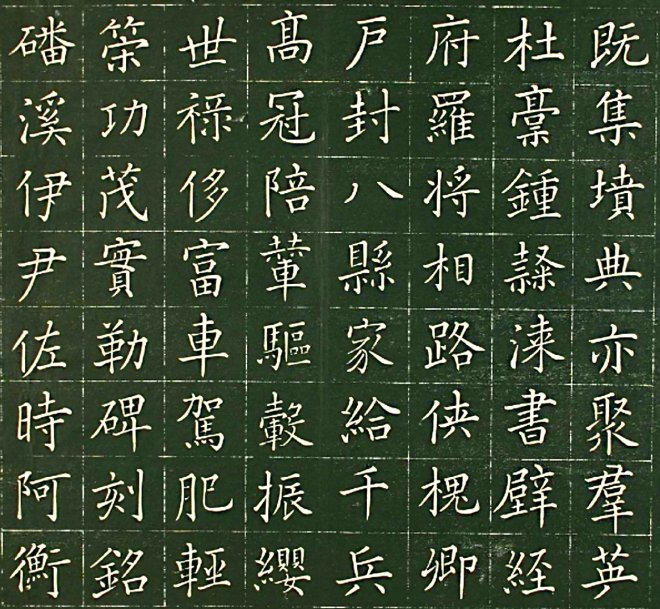 既集墳典亦聚羣英
杜稾鍾隸漆書壁経
府羅将相路侠槐卿
戶封八縣家給千兵
髙冠陪輦驅轂振纓
世禄侈富車駕肥輕
策功茂實勒碑刻銘
磻溪伊尹佐時阿衡